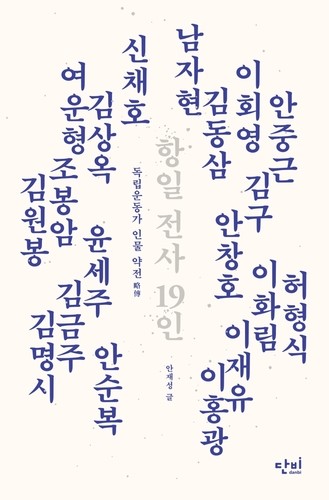 남자현
신채호
이회영
안중근
김동삼
여운형
김상옥
항일 전사 19인
독립운동가 인물 약전 略傳
김구
조봉암
김원봉
안창호
윤세주
이화림
허형식
김금주
김명시
이재유
안순복
이홍광
안재성 글
단비
danbi